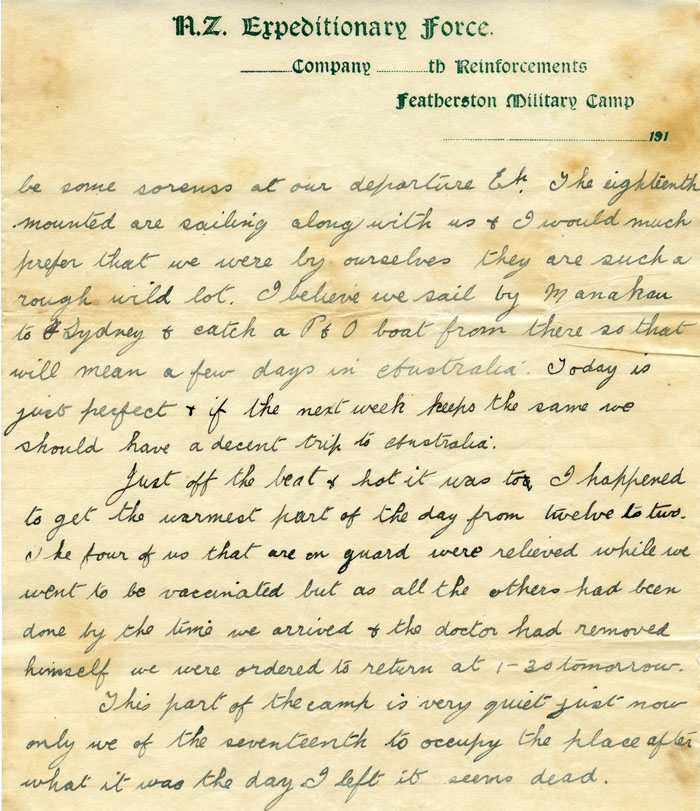 N.Z. Expeditionary Force.
______Company ______th Reinforcements
Featherston Military Camp
191
be some sorenss at our departure Etc. The eighteenth
mounted are sailing along with us & I would much
prefer that we were by ourselves they are such a
rough wild lot. I believe we sail by Manakau
to Sydney & catch a P & O boat from there so that
will mean a few days in Australia. Today is
just perfect & if the next week keeps the same we
should have a decent trip to Australia.
Just off the beat & hot it was too, I happened
to get the warmest part of the day from twelve to two.
The four of us that are on guard were relieved while we
went to be vaccinated but as all the others had been
done by the time we arrived & the doctor had removed
himself we were ordered to return at 1-30 tomorrow.
This part of the camp is very quiet just now
only we of the seventeenth to occupy the place after
what it was the day I left it seems dead.